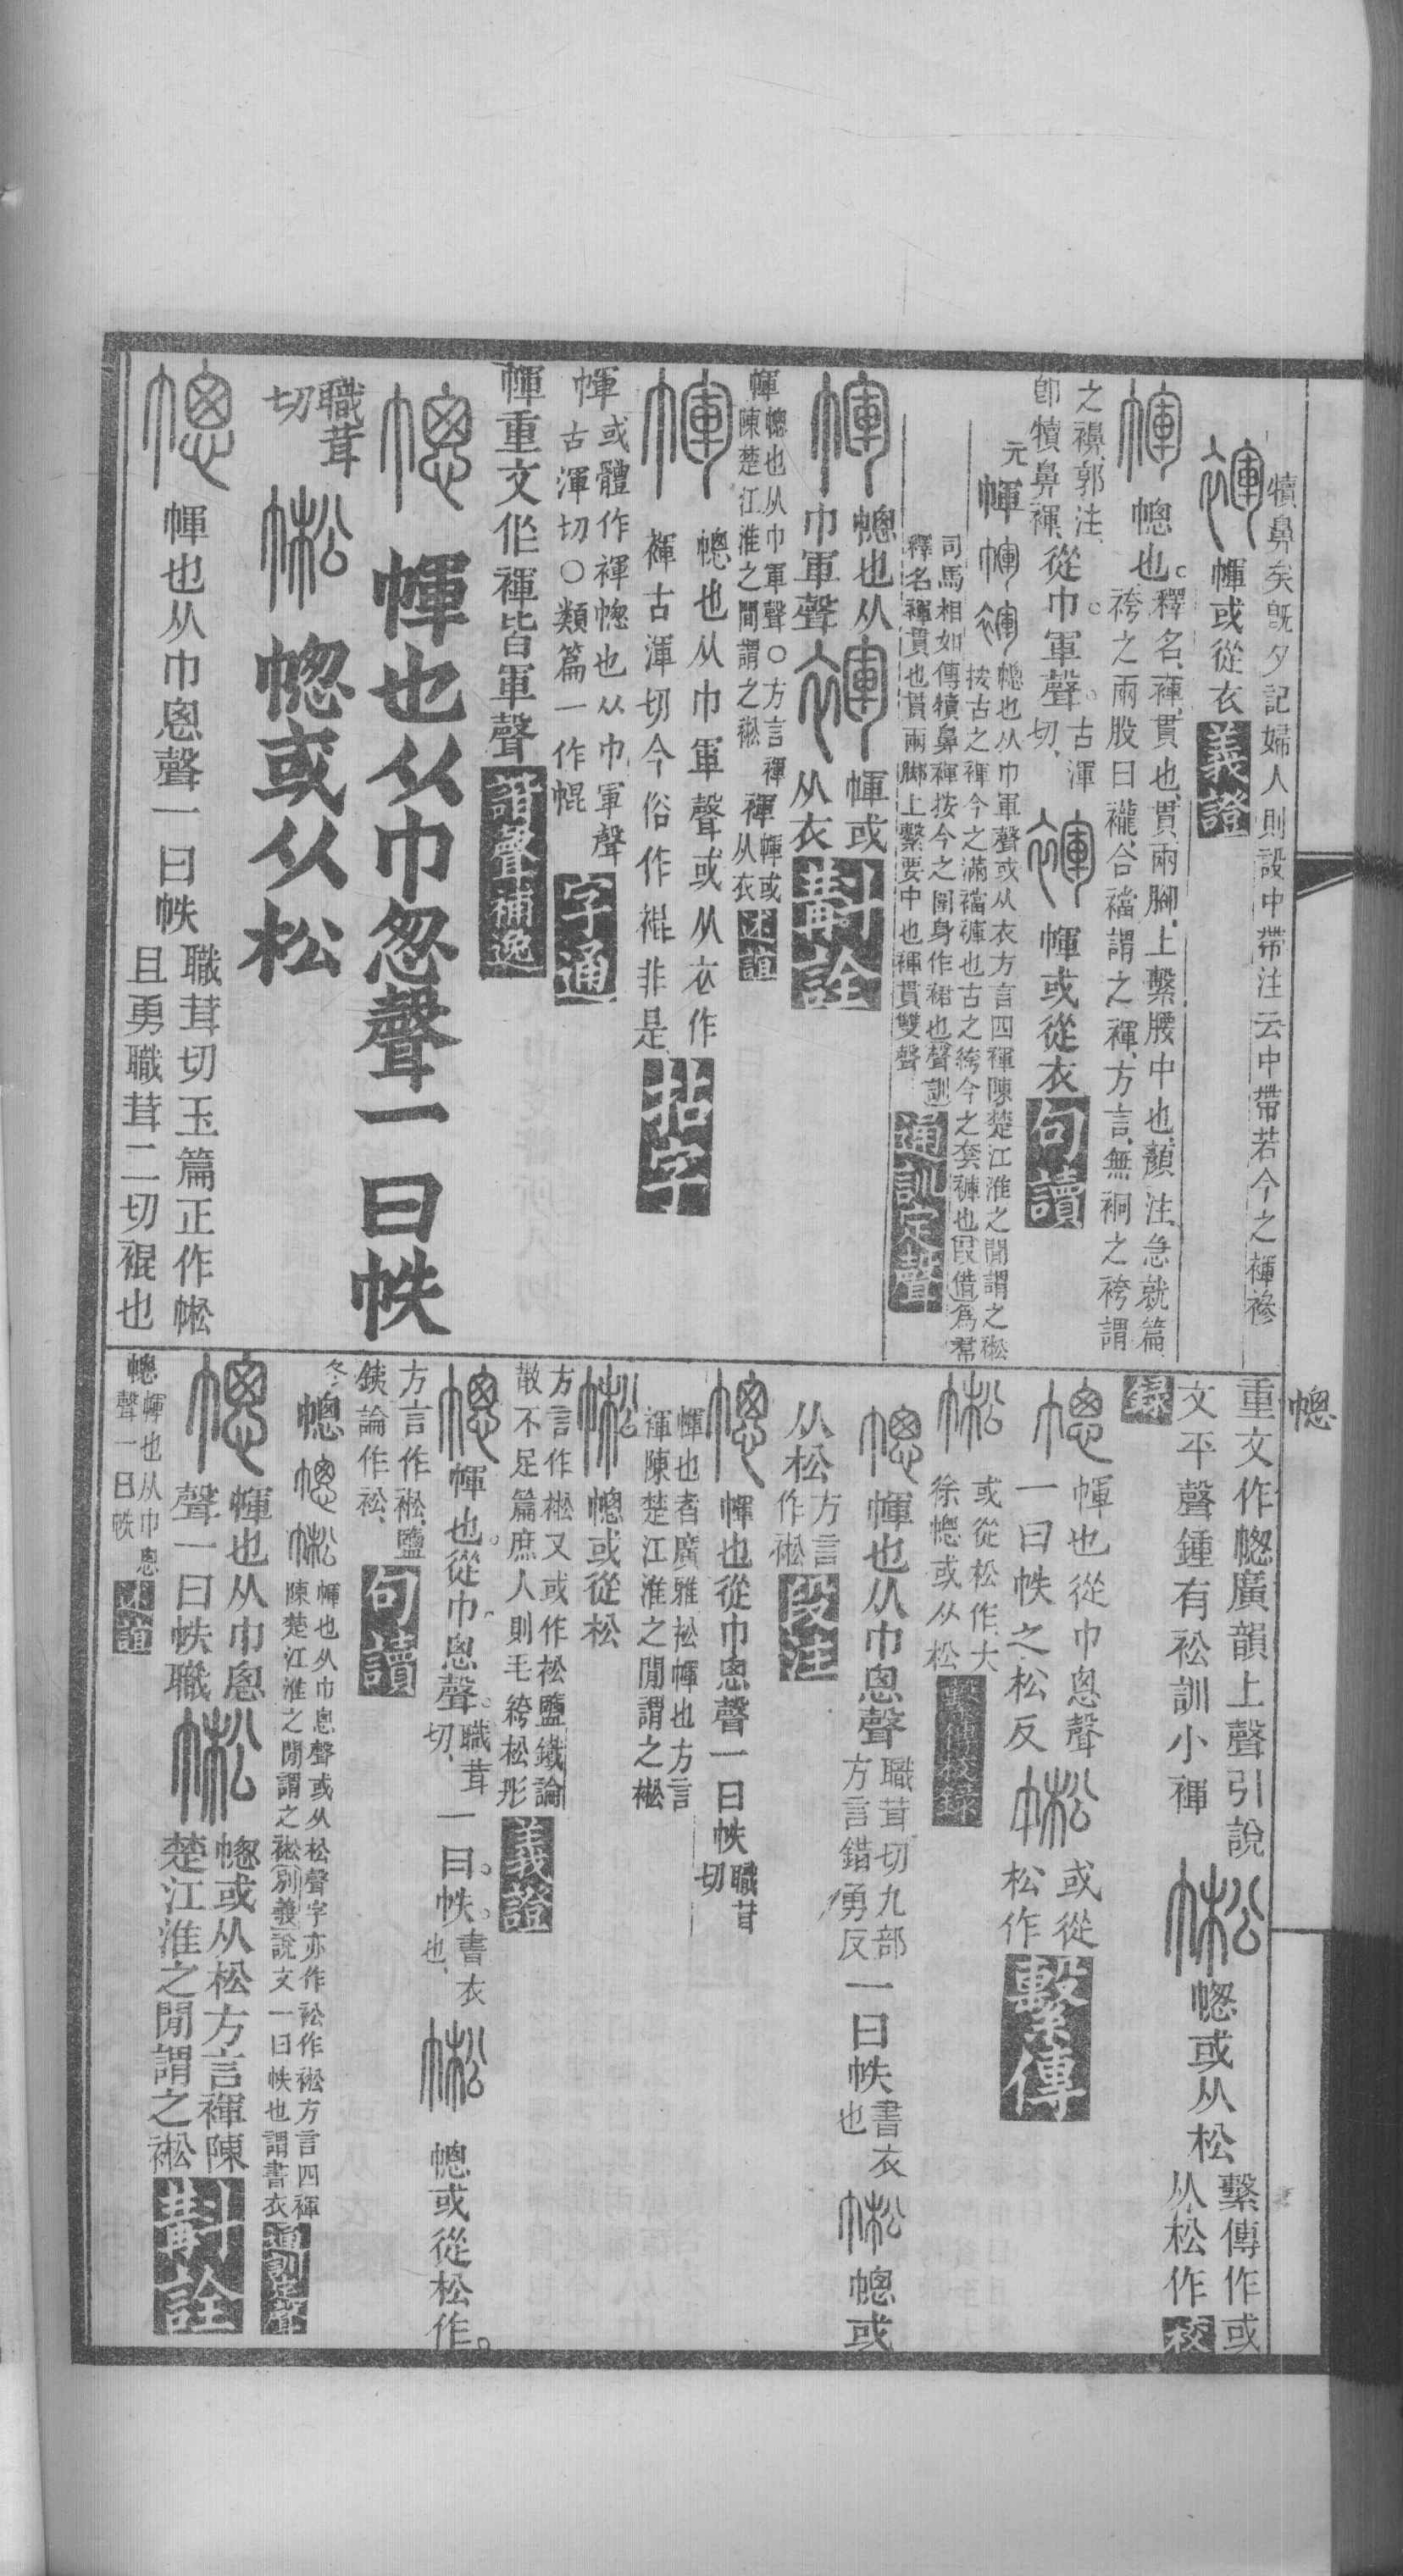 犢鼻矣旣夕記婦人則設中帶注云中帶若今之褌襂
㡓或從衣義證
幒也釋名褌貫也貫兩腳上繫腰中也顏注急就篇
袴之兩股曰襱合襠謂之褌方言無裥之袴謂
之襣郭注
卽犢鼻褌從巾軍聲古渾
切㡓或從衣句讀
元㡓幒也从巾軍聲或从衣方言四褌陳楚江淮之閒謂之㡆
按古之褌今之滿襠褲也古之絝今之套褲也叚借爲帬
司馬相如傳犢鼻褌按今之圍身作裙也聲訓
釋名褌貫也貫兩腳上繫要中也褌貫雙聲通訓定聲
幒也从巾軍聲
㡓或从衣斠詮
㡓幒也从巾軍聲○方言褌
陳楚江淮之間謂之㡆
褌㡓或从衣述誼
幒也从巾軍聲或从衣作
褌古渾切今俗作裩非是拈字
㡓或體作褌幒也从巾軍聲
古渾切○類篇一作㡡字通
㡓重文作褌皆軍聲諧聲補逸
㡓也从巾怱聲一曰帙
職茸切
幒或从松
㡓也从巾悤聲一曰帙職茸切玉篇正作㡆
且勇職茸二切裩也
幒
重文作幒廣韻上聲引說
文平聲鍾有衳訓小褌
幒或从松繫傳作或
从松作校錄
㡓也從巾悤聲
一曰帙之松反
或從松作繫傳
或從松作大
徐幒或从松繫傳校錄
㡓也从巾悤聲職茸切九部
方言錯勇反一曰帙書衣也
幒或从松方言作㡆段注
㡓也從巾悤聲一曰帙職茸切
㡓也者廣雅㡆㡓也方言
褌陳楚江淮之閒謂之㡆
幒或從松
方言作㡆又或作松鹽鐵論
散不足篇庶人則毛絝松彤義證
㡓也從巾悤聲職茸切一曰帙書衣也
幒或從松作
方言作㡆鹽
鐵論作衳句讀
冬幒㡓也从巾悤聲或从松聲字亦作衳作㡆方言四褌
陳楚江淮之閒謂之㡆別義說文一曰帙也謂書衣通訓定聲
㡓也从巾悤
聲一曰帙職
幒或从松方言褌陳
楚江淮之閒謂之㡆斠詮
幒㡓也从巾悤
聲一曰帙述誼